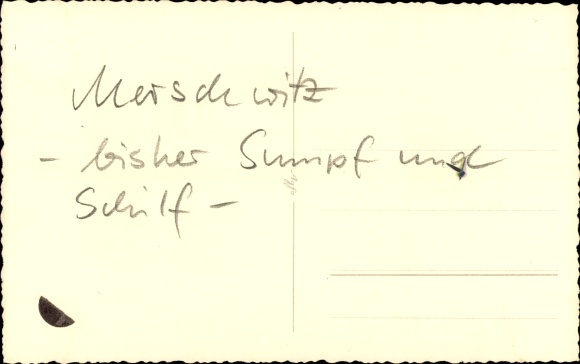 Merschwitz
- bisher Sumpf und
Schilf -